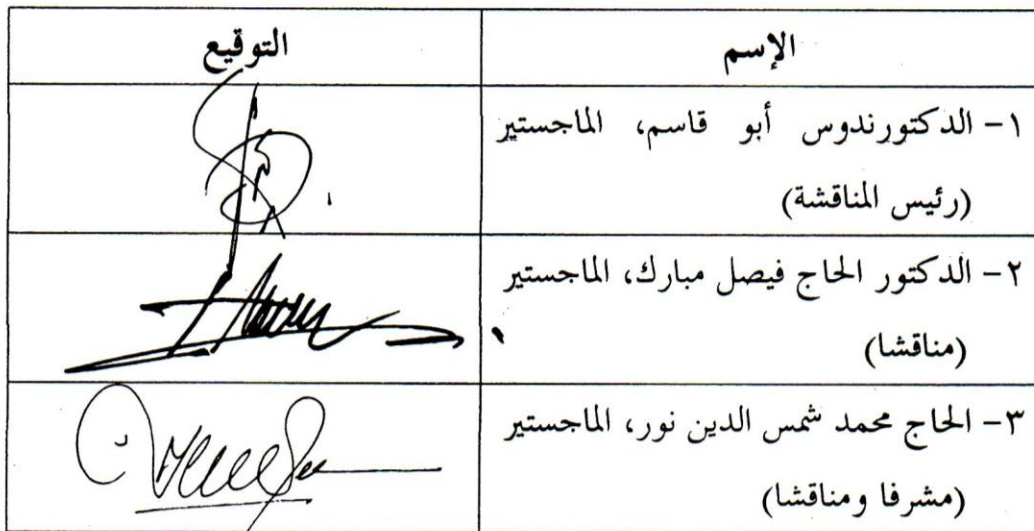 الإسم
التوقيع
١- الدكتورندوس أبو قاسم، الماجستير
(رئيس المناقشة)
٢- الدكتور الحاج فيصل مبارك، الماجستير
(مناقشا)
٣- الحاج محمد شمس الدين نور، الماجستير
(مشرفا ومناقشا)